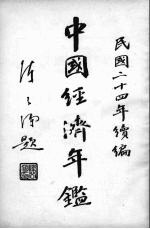 民國二十四年續編
中國經濟年鑑
陳公博題